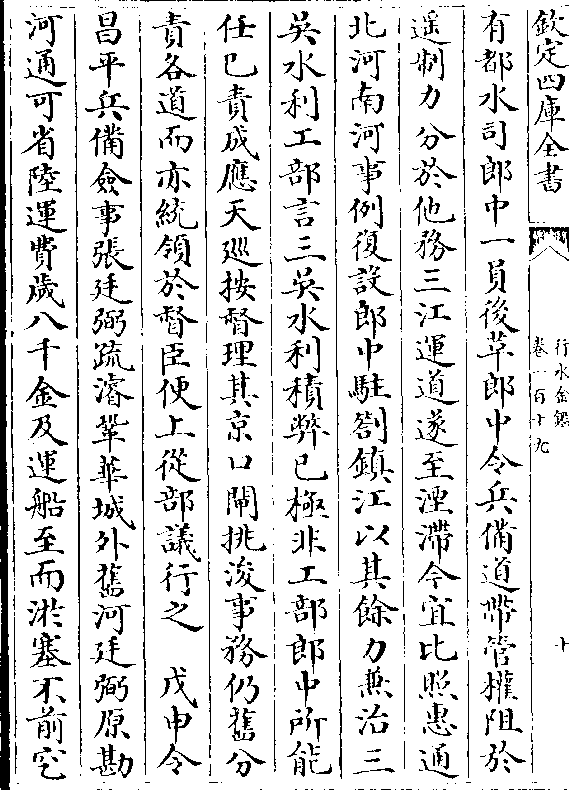 欽定四庫全書
行水金鑑
卷一百十九
十
有都水司郎中一員後革郎中令兵備道帶管權阻於
遥制力分於他務三江運道遂至湮滯今宜比照惠通
北河南河事例復設郎中駐劄鎮江以其餘力兼治三
吳水利工部言三吳水利積弊已極非工部郎中所能
任已責成應天廵按督理其京口閘挑浚事務仍舊分
責各道而亦統領於督臣便上從部議行之　戊申令
昌平兵備僉事張廷弼疏濬鞏華城外舊河廷弼原勘
河通可省陸運費歲八千金及運船至而淤塞不前空